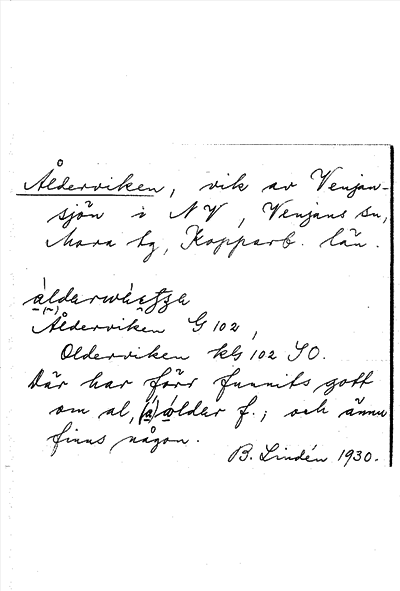 Ålderviken, vik av Venjan-
sjön i NV, Venjans sn,
Mora tg, Kopparb. län.
Ålderviken G 102,
Olderviken kG 102 SO.
Där har förr funnits gott
om al, ålder f.; och ännu
finns någon.
B. Lindén 1930.